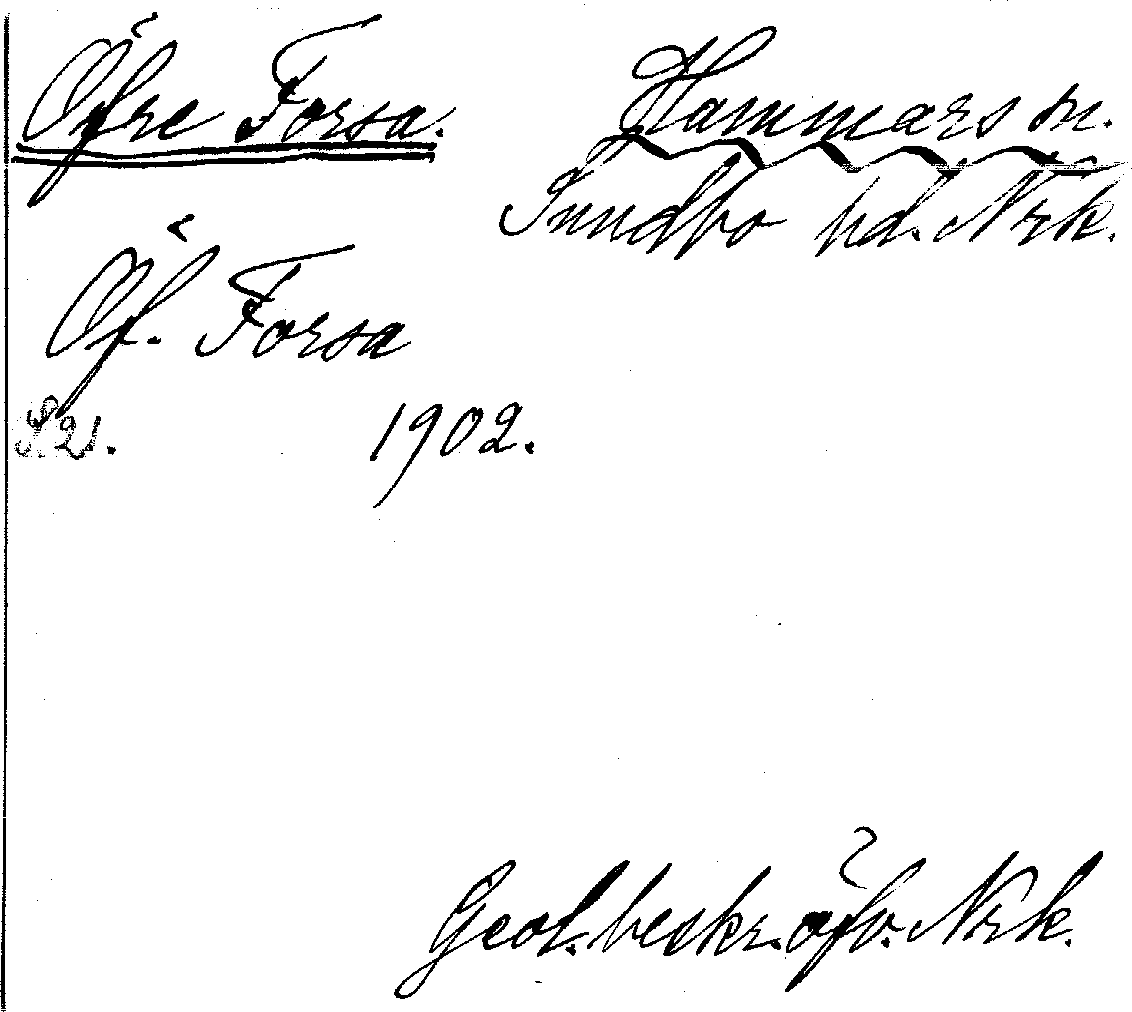 Öfre Forsa.
Hammars sn.
Sundbo hd. Nrk.
Öf. Forsa
S. 21. 1902.
Geol. beskr. öfv. Nrk.